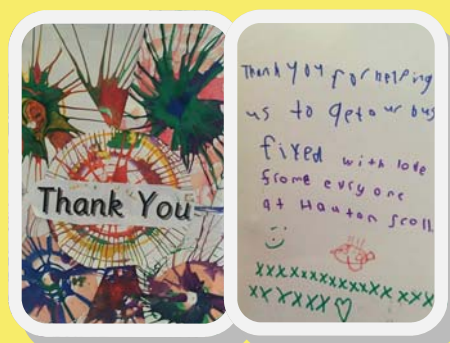 Thank You
Thank you for helping
us to get our bus
fixed with love
frome evry one
at Hauton scoll
xxxxxxxxxxxxxx xxx
xx xxxxx